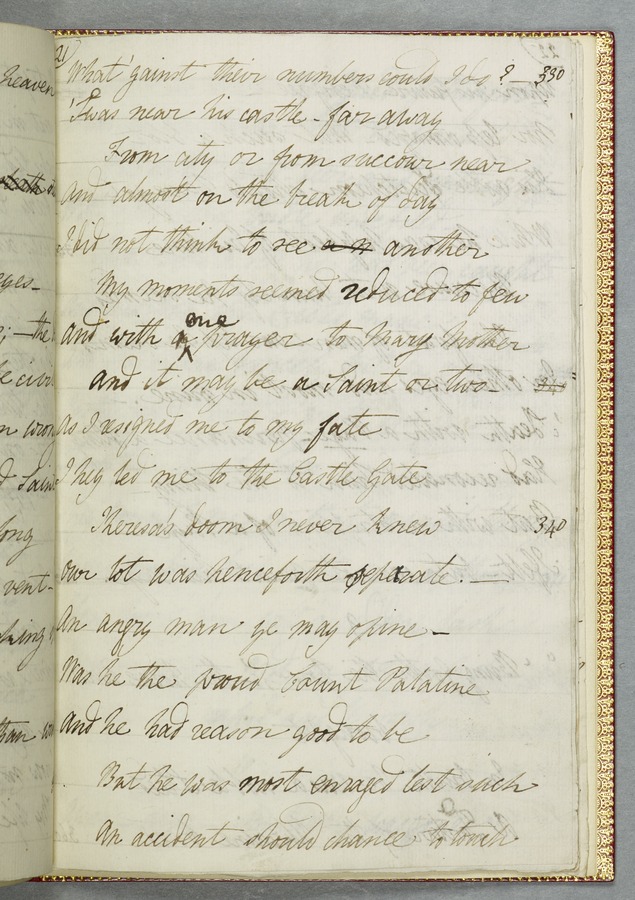 21
What 'gainst their numbers could I do? — 330
'Twas near his castle - far away
From city or from succour near
And almost on the break of day
I did not think to see an another
My moments seemed reduced to few
And with one prayer to Mary Mother
And it may be a Saint or two -
As I resigned me to my fate
They led me to the Castle Gate
Theresa's doom I never knew 340
Our lot was henceforth separate. —
An angry man ye may opine —
Was he the proud Count Palatine
And he had reason good to be
But he was most enraged lest such
An accident should chance to touch